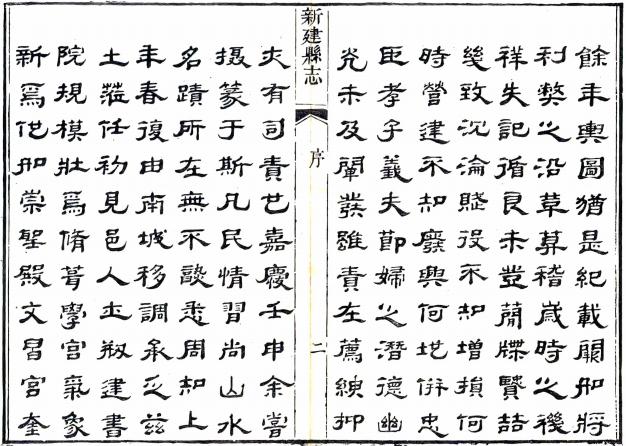 餘年輿圖猶是紀載闕如將
利獘之沿革莫稽歲時之禨
祥失記循良未登蕳牒賢喆
幾致沉淪賦役不知增損何
時營建不知廢興何地併忠
臣孝子義夫節婦之潛德幽
光未及闡發雖責在薦紳抑
新建縣志 序 二
亦有司責也嘉慶壬申余嘗
攝篆于斯凡民情習尚山水
名蹟所在無不諮悉周知上
年春復由南城移調承乏茲
土蒞任初見邑人士剏建書
院規模壯焉脩葺學宮氣象
新焉他如崇聖殿文昌宮奎